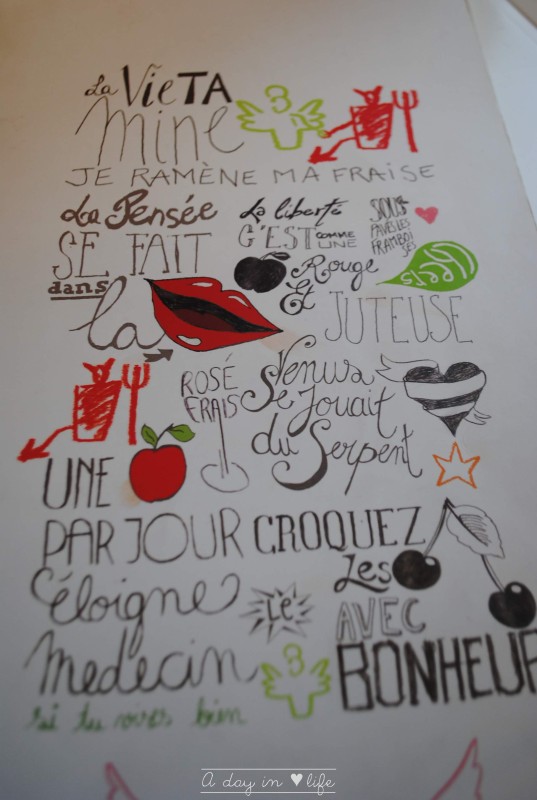 La Vie TA
mine
JE RAMÈNE MA FRAISE
La Pensée
SE FAIT
dans
la
La liberté
C'EST COMME
UNE
Rouge
Et
JUTEUSE
SOUS
PAVÉS LES
FRAMBOI
SES
ROSÉ
FRAIS
Venus
Se jouait
du Serpent
UNE
PAR JOUR
éloigne
LE
Medecin
si tu vises bien
CROQUEZ
Les
AVEC
BONHEUR
A day in ♥ life